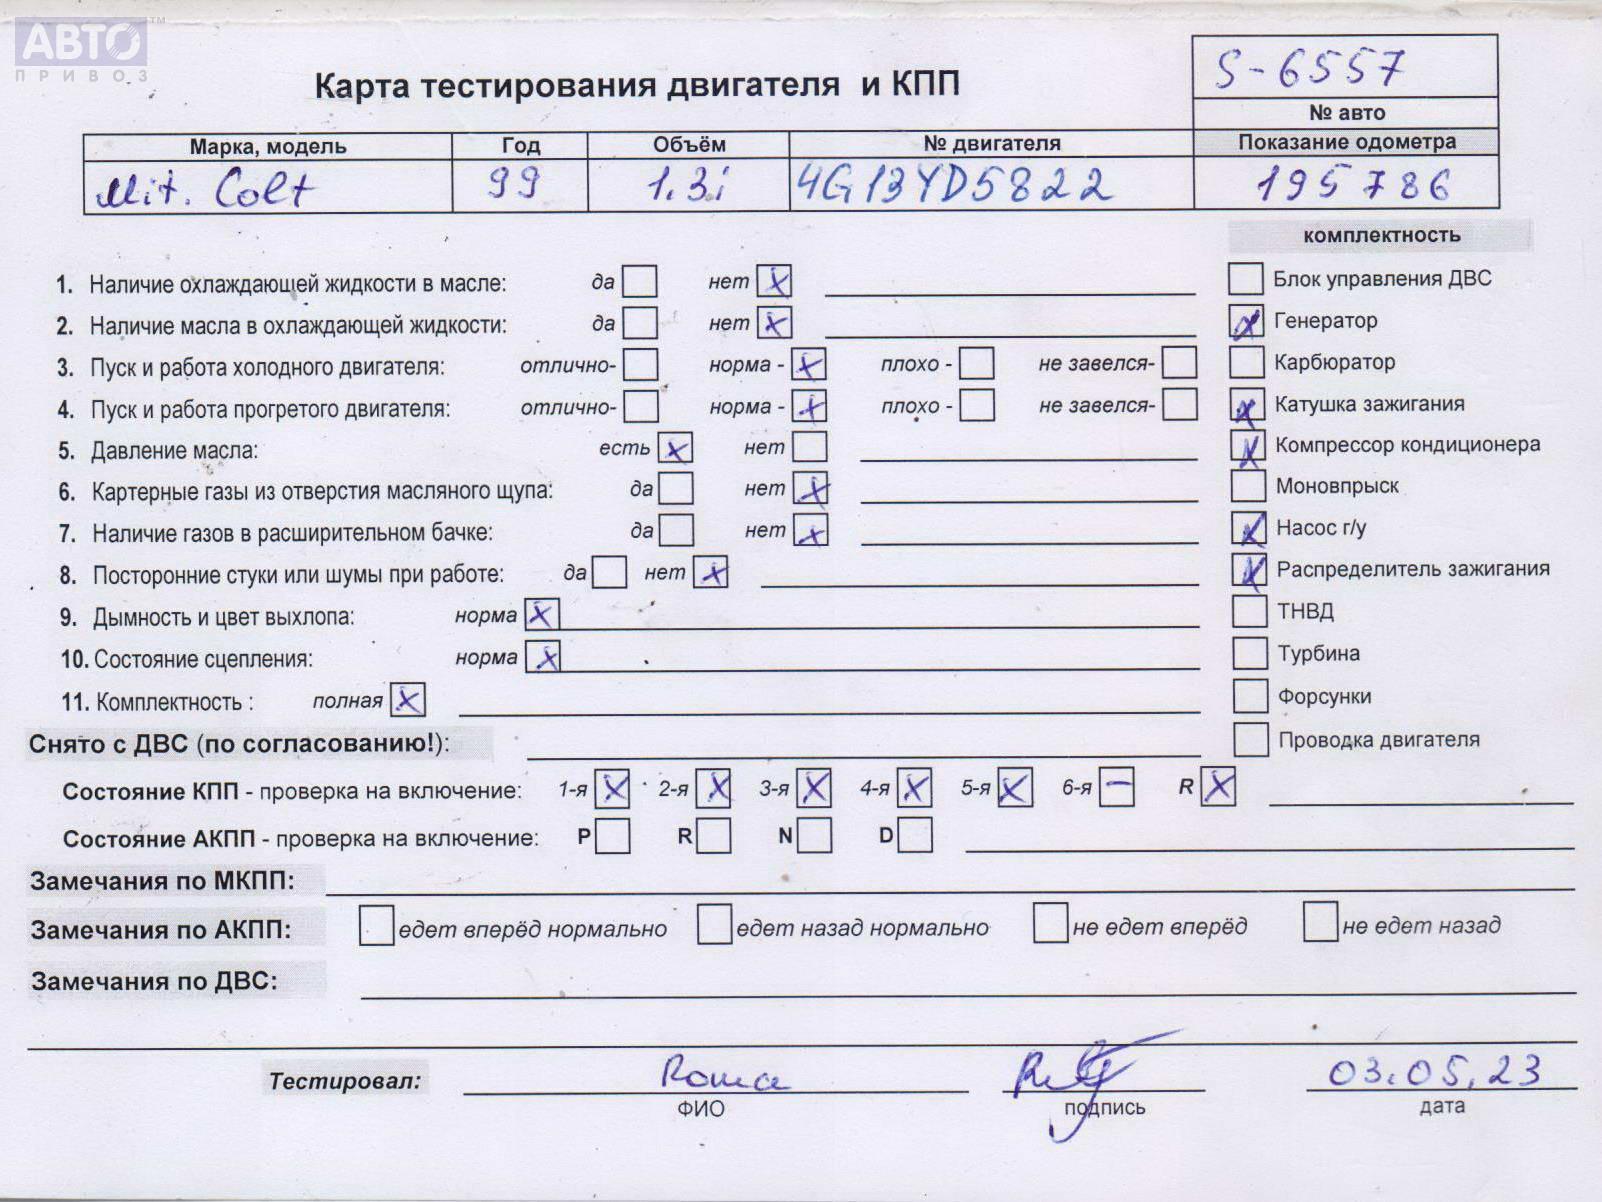 АВТО ™
ПРИВОЗ
S-6557
Карта тестирования двигателя и КПП
№ авто
Марка, модель Год Объём № двигателя Показание одометра
Mit. Colt 99 1.3i 4G13YD5822 195786
комплектность
1. Наличие охлаждающей жидкости в масле: да нет X Блок управления ДВС
2. Наличие масла в охлаждающей жидкости: да нет X X Генератор
3. Пуск и работа холодного двигателя: отлично- норма - X плохо - не завелся- Карбюратор
4. Пуск и работа прогретого двигателя: отлично- норма - X плохо - не завелся- X Катушка зажигания
5. Давление масла: есть X нет X Компрессор кондиционера
6. Картерные газы из отверстия масляного щупа: да нет X Моновпрыск
7. Наличие газов в расширительном бачке: да нет X X Насос г/у
8. Посторонние стуки или шумы при работе: да нет X X Распределитель зажигания
9. Дымность и цвет выхлопа: норма X ТНВД
10. Состояние сцепления: норма X Турбина
11. Комплектность : полная X Форсунки
Снято с ДВС (по согласованию!): Проводка двигателя
Состояние КПП - проверка на включение: 1-я X 2-я X 3-я X 4-я X 5-я X 6-я – R X
Состояние АКПП - проверка на включение: P R N D
Замечания по МКПП:
Замечания по АКПП: едет вперёд нормально едет назад нормально не едет вперёд не едет назад
Замечания по ДВС:
Тестировал: Рома 03.05.23
ФИО подпись дата